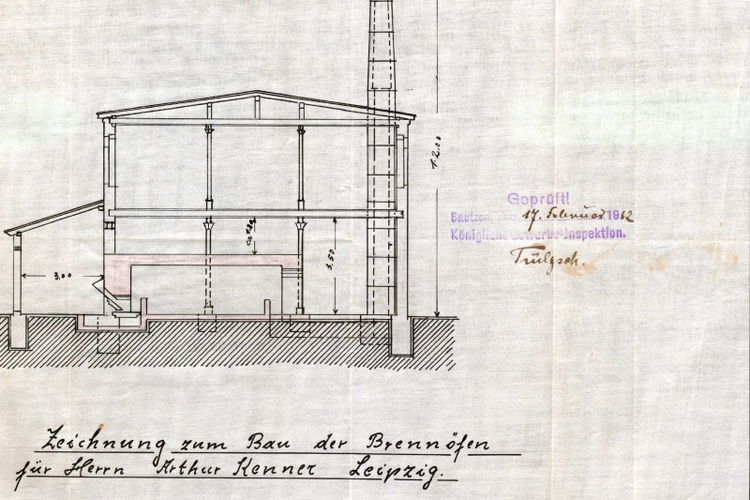 12.00
3,00
3,50
Geprüft!
Bautzen, 17. Februar 1912
Königliche Gewerbe-Inspektion.
Zeichnung zum Bau der Brennöfen
für Herrn Arthur Kenner Leipzig.